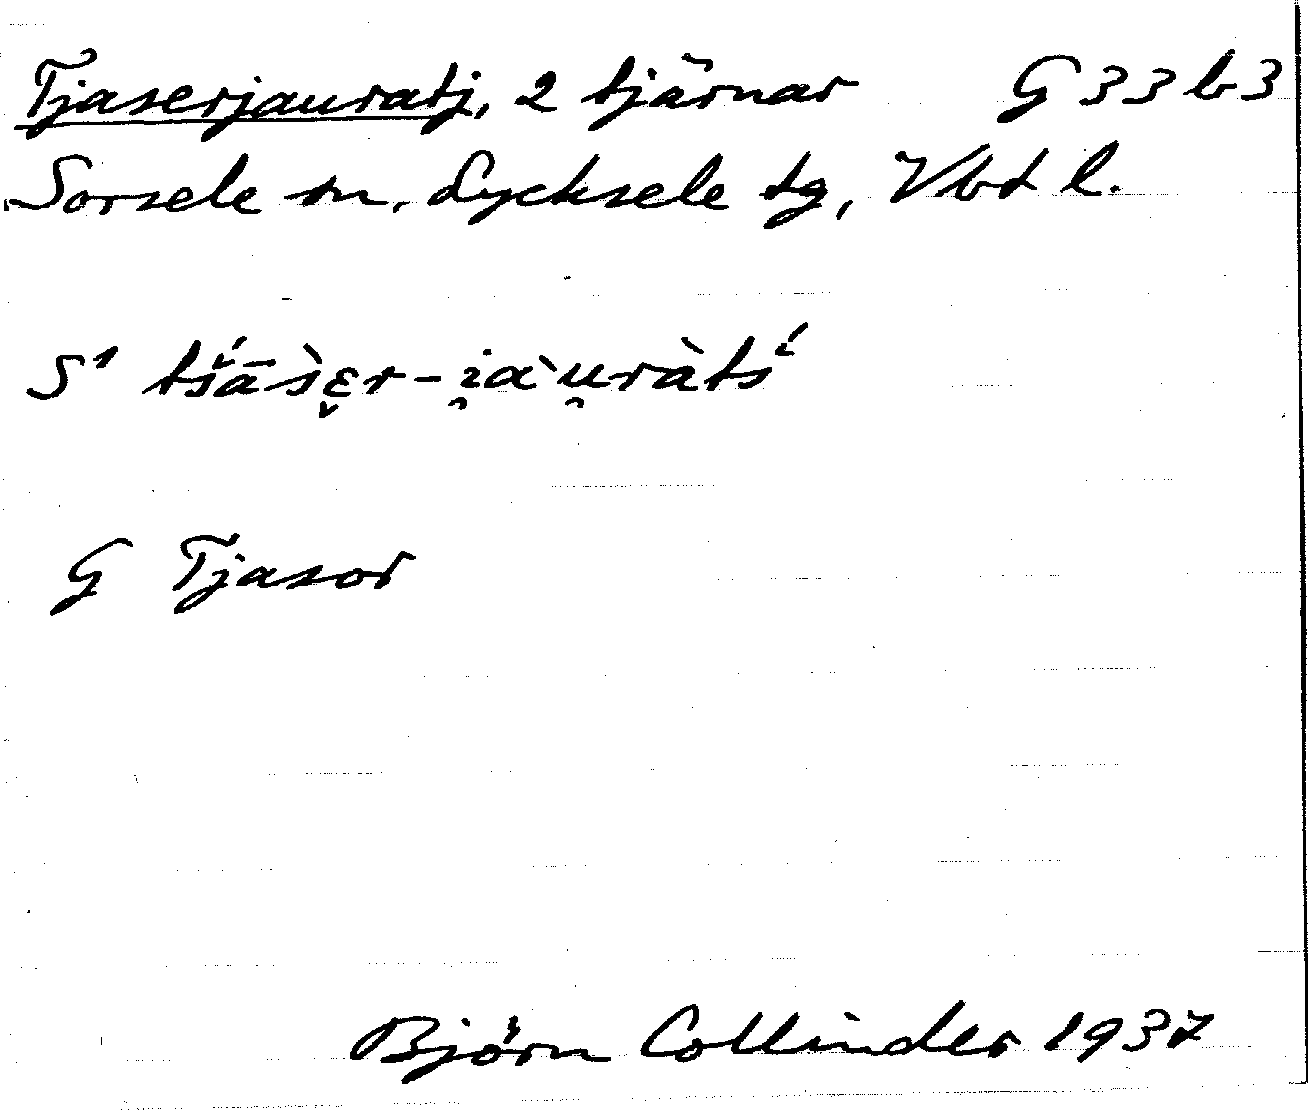 Tjaserjauratj, 2 tjärnar G 33 b 3
Sorsele sn. Lycksele tg, Vbt l.
S¹ tš́ās̀ɛ̬r-i̯àu̯ràtś
G Tjasor
Björn Collinder 1937